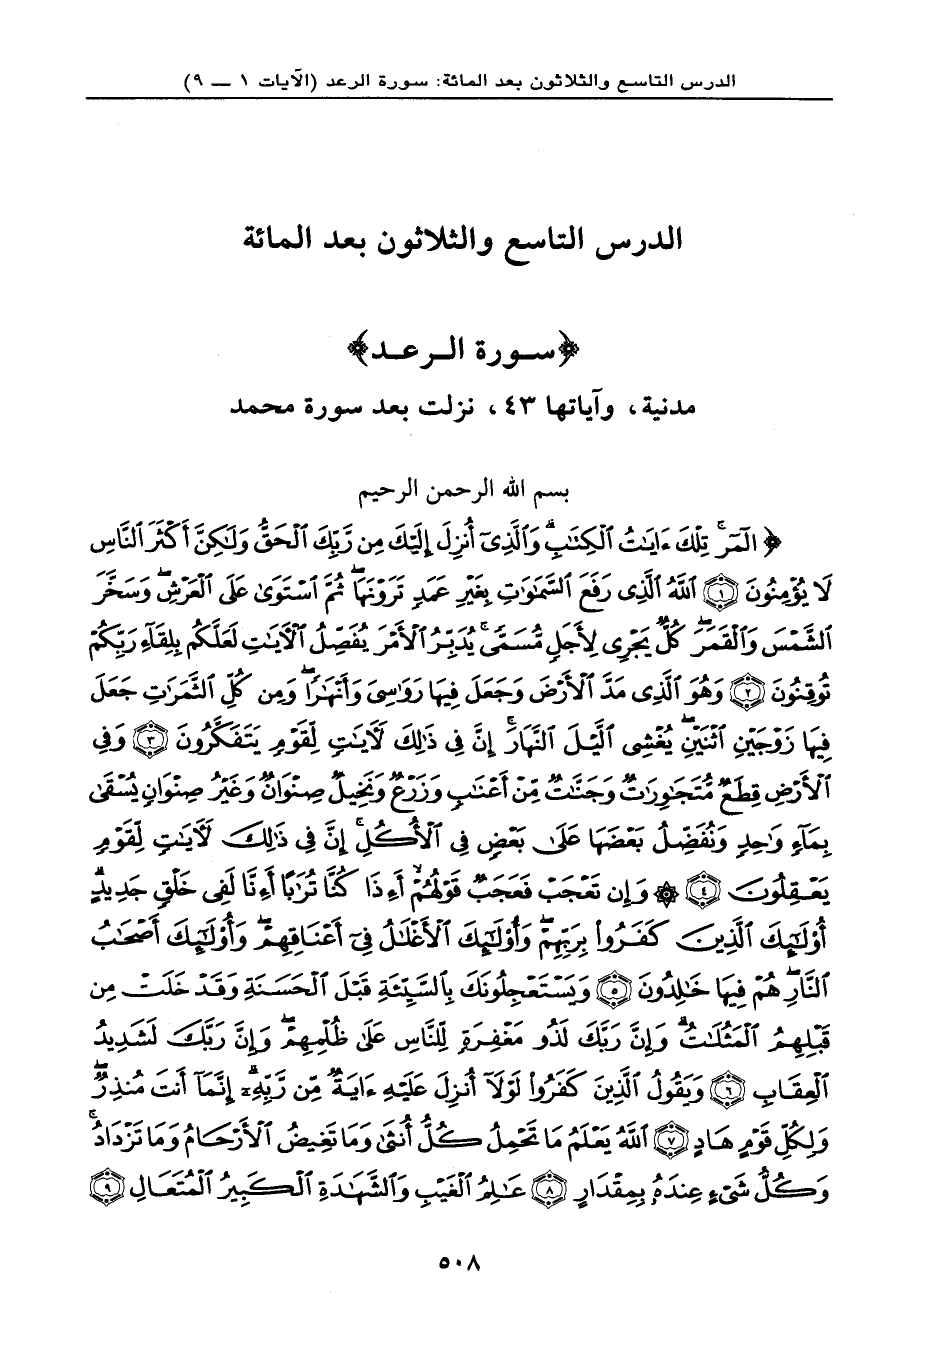 الدرس التاسع والثلاثون بعد المائة: سورة الرعد (الآيات ١ — ٩)
الدرس التاسع والثلاثون بعد المائة
﴿سورة الرعد﴾
مدنية، وآياتها ٤٣، نزلت بعد سورة محمد
بسم الله الرحمن الرحيم
﴿ الٓمٓرۚ تِلۡكَ ءَايَٰتُ ٱلۡكِتَٰبِۗ وَٱلَّذِيٓ أُنزِلَ إِلَيۡكَ مِن رَّبِّكَ ٱلۡحَقُّ وَلَٰكِنَّ أَكۡثَرَ ٱلنَّاسِ
لَا يُؤۡمِنُونَ ١ ٱللَّهُ ٱلَّذِي رَفَعَ ٱلسَّمَٰوَٰتِ بِغَيۡرِ عَمَدٖ تَرَوۡنَهَاۖ ثُمَّ ٱسۡتَوَىٰ عَلَى ٱلۡعَرۡشِۖ وَسَخَّرَ
ٱلشَّمۡسَ وَٱلۡقَمَرَۖ كُلّٞ يَجۡرِي لِأَجَلٖ مُّسَمّٗىۚ يُدَبِّرُ ٱلۡأَمۡرَ يُفَصِّلُ ٱلۡأٓيَٰتِ لَعَلَّكُم بِلِقَآءِ رَبِّكُمۡ
تُوقِنُونَ ٢ وَهُوَ ٱلَّذِي مَدَّ ٱلۡأَرۡضَ وَجَعَلَ فِيهَا رَوَٰسِيَ وَأَنۡهَٰرٗاۖ وَمِن كُلِّ ٱلثَّمَرَٰتِ جَعَلَ
فِيهَا زَوۡجَيۡنِ ٱثۡنَيۡنِۖ يُغۡشِي ٱلَّيۡلَ ٱلنَّهَارَۚ إِنَّ فِي ذَٰلِكَ لَأٓيَٰتٖ لِّقَوۡمٖ يَتَفَكَّرُونَ ٣ وَفِي
ٱلۡأَرۡضِ قِطَعٞ مُّتَجَٰوِرَٰتٞ وَجَنَّٰتٞ مِّنۡ أَعۡنَٰبٖ وَزَرۡعٞ وَنَخِيلٞ صِنۡوَانٞ وَغَيۡرُ صِنۡوَانٖ يُسۡقَىٰ
بِمَآءٖ وَٰحِدٖ وَنُفَضِّلُ بَعۡضَهَا عَلَىٰ بَعۡضٖ فِي ٱلۡأُكُلِۚ إِنَّ فِي ذَٰلِكَ لَأٓيَٰتٖ لِّقَوۡمٖ
يَعۡقِلُونَ ٤ ۞ وَإِن تَعۡجَبۡ فَعَجَبٞ قَوۡلُهُمۡ أَءِذَا كُنَّا تُرَٰبًا أَءِنَّا لَفِي خَلۡقٖ جَدِيدٍۗ
أُوْلَٰٓئِكَ ٱلَّذِينَ كَفَرُواْ بِرَبِّهِمۡۖ وَأُوْلَٰٓئِكَ ٱلۡأَغۡلَٰلُ فِيٓ أَعۡنَاقِهِمۡۖ وَأُوْلَٰٓئِكَ أَصۡحَٰبُ
ٱلنَّارِۖ هُمۡ فِيهَا خَٰلِدُونَ ٥ وَيَسۡتَعۡجِلُونَكَ بِٱلسَّيِّئَةِ قَبۡلَ ٱلۡحَسَنَةِ وَقَدۡ خَلَتۡ مِن
قَبۡلِهِمُ ٱلۡمَثُلَٰتُۗ وَإِنَّ رَبَّكَ لَذُو مَغۡفِرَةٖ لِّلنَّاسِ عَلَىٰ ظُلۡمِهِمۡۖ وَإِنَّ رَبَّكَ لَشَدِيدُ
ٱلۡعِقَابِ ٦ وَيَقُولُ ٱلَّذِينَ كَفَرُواْ لَوۡلَآ أُنزِلَ عَلَيۡهِ ءَايَةٞ مِّن رَّبِّهِۦٓۗ إِنَّمَآ أَنتَ مُنذِرٞۖ
وَلِكُلِّ قَوۡمٍ هَادٍ ٧ ٱللَّهُ يَعۡلَمُ مَا تَحۡمِلُ كُلُّ أُنثَىٰ وَمَا تَغِيضُ ٱلۡأَرۡحَامُ وَمَا تَزۡدَادُۚ
وَكُلُّ شَيۡءٍ عِندَهُۥ بِمِقۡدَارٍ ٨ عَٰلِمُ ٱلۡغَيۡبِ وَٱلشَّهَٰدَةِ ٱلۡكَبِيرُ ٱلۡمُتَعَالِ ٩
٥٠٨